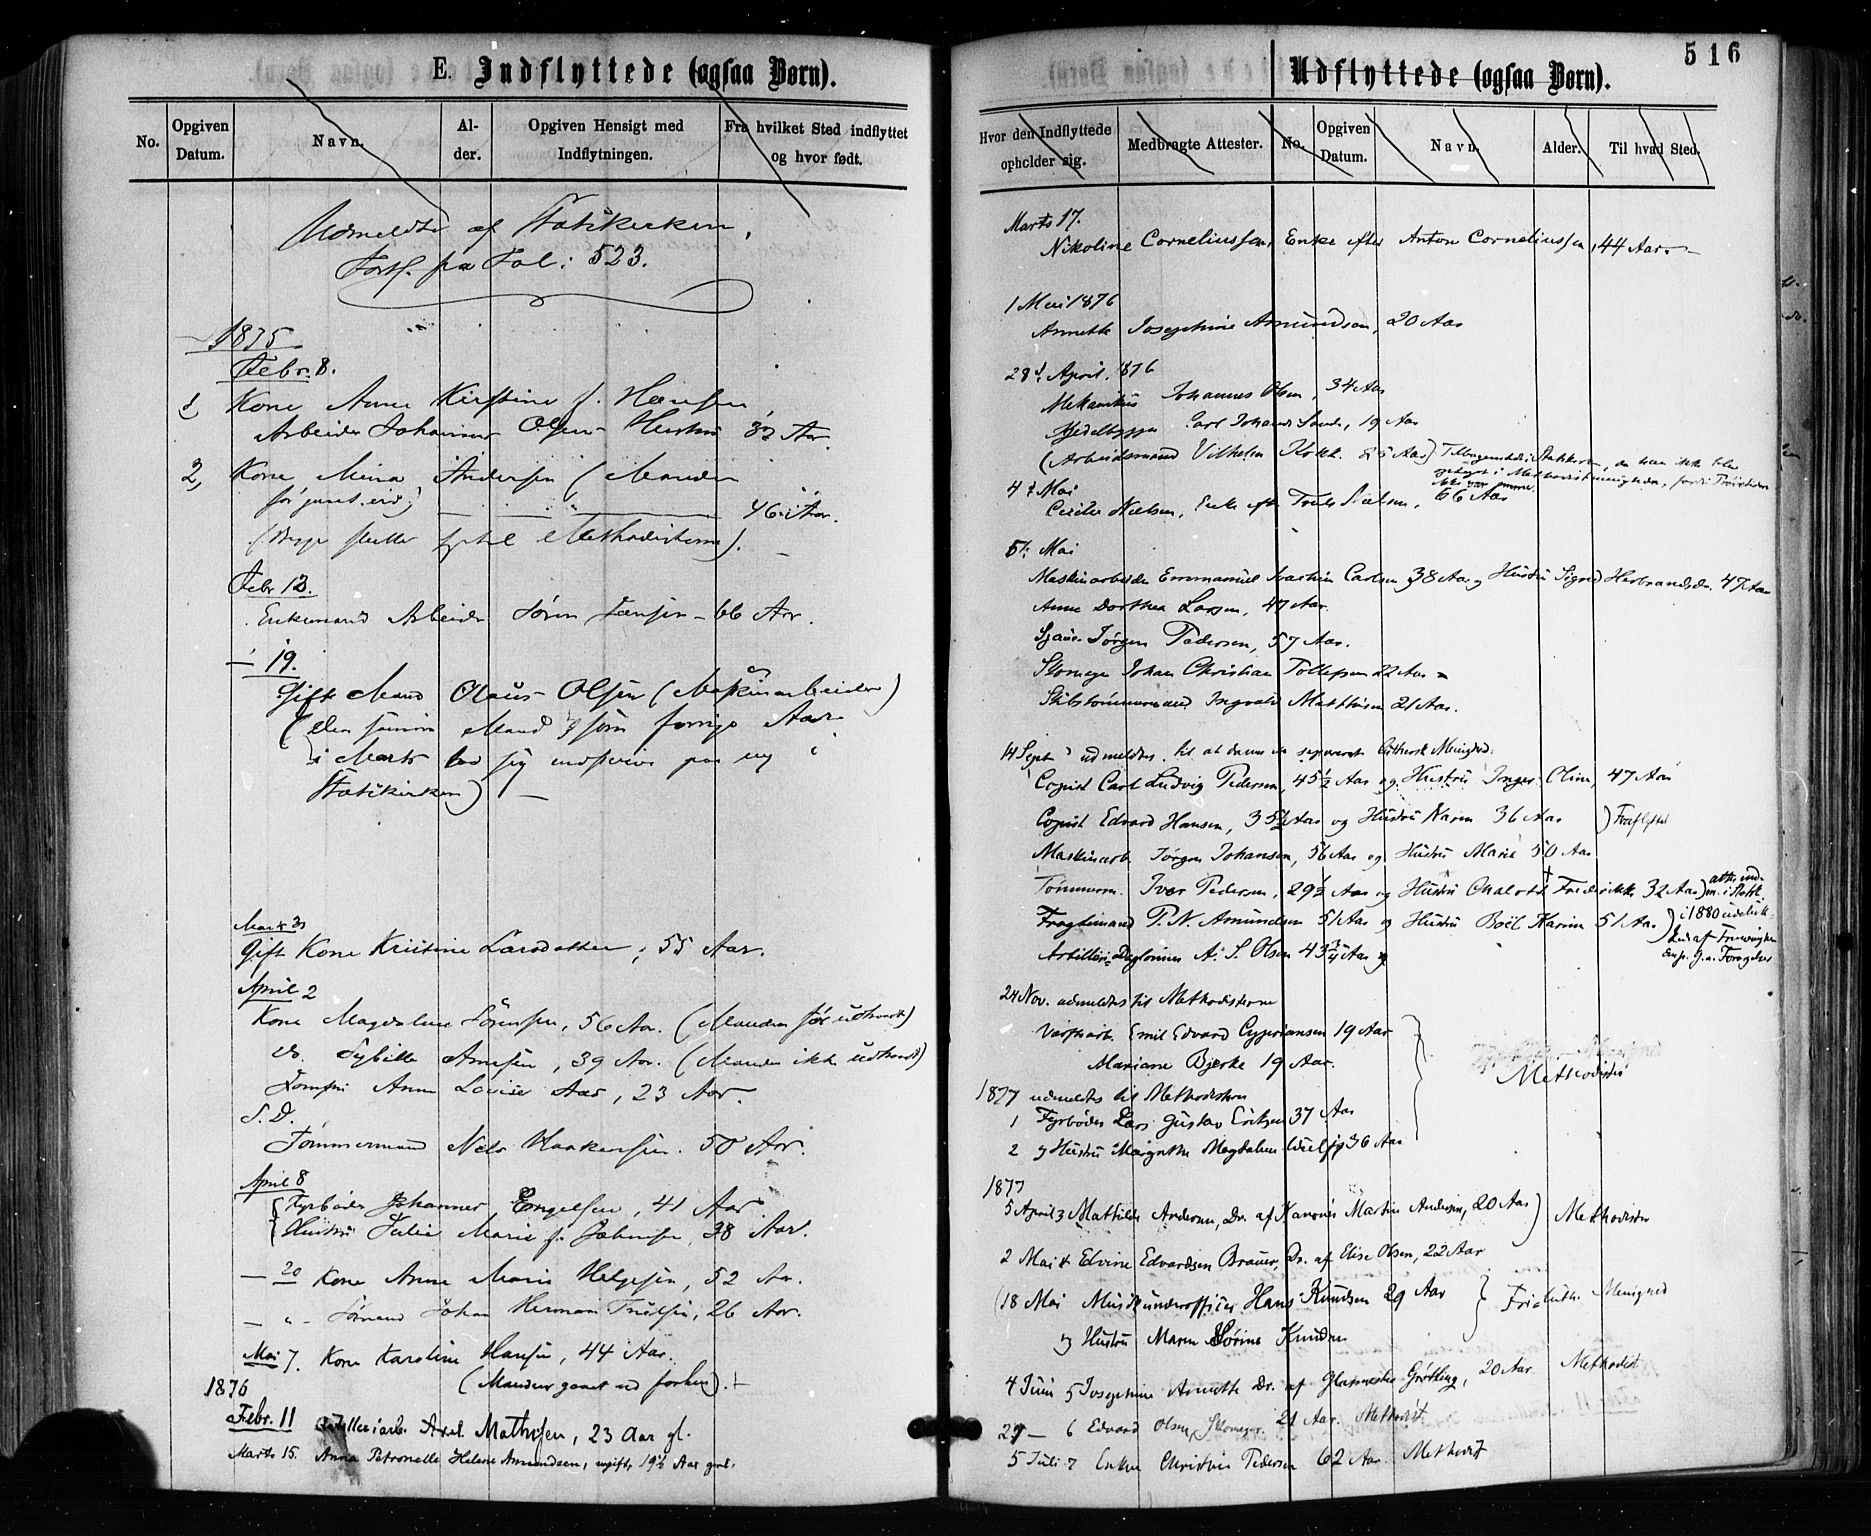 E. Indflyttede (ogsaa Børn).
No.
Opgiven Datum.
Navn.
Al-der.
Opgiven Hensigt med Indflytningen.
Fra hvilket Sted indflyttet og hvor født.
Udmeldte af Statskirken,
Forts. fra Fol: 523.
1875
Febr. 8.
1, Kone Anne Kirstine f. Hansen
Arbeider Johannes Olsens Hustru 32 Aar.
2, Kone Mina Andersen (Manden
før 46 Aar.
(Begge Methodisterne).
Febr 12.
Enkemand Arbeider Søren Jensen - 66 Aar.
— 19.
Gift Mand Olaus Olsen (Maskinarbeider)
(Den samme Mand som forrige Aar
i Marts lod sig indskrive paa ny i
Statskirken) —
Marts 3
Gift Kone Kristine Larsdatter, 55 Aar.
April 2
Kone Magdalene Sørensen, 56 Aar. (Manden før udtraadt)
do. Sybille Arnesen, 39 Aar. (Manden ikke udtraadt)
Jomfru Anna Lovise Aas, 23 Aar.
S. D.
Tømmermand Nils Haakensen. 50 Aar.
April 8
Fyrbøder Johannes Engelsen, 41 Aar
Hustru Julie Marie f. Johnsen, 38 Aar.
— 20 Kone Anne Marie Helgesen, 52 Aar.
— " — Sømand Johan Herman Truelsen, 26 Aar.
Mai 7. Kone Karoline Hansen, 44 Aar.
(Manden gaaet ud forhen).
1876
Febr. 11 Artilleriarb. Axel Mathisen, 23 Aar gl.
Marts 15. Anna Petronelle Helene Amundsen, ugift, 19½ Aar gml.
516
Udflyttede (ogsaa Børn).
Hvor den Indflyttede opholder sig.
Medbragte Attester.
No.
Opgiven Datum.
Navn.
Alder.
Til hvad Sted.
Marts 17.
Nikoline Corneliussen, Enke efter Anton Corneliussen, 44 Aar.
1 Mai 1876
Annette Josephine Amundsen, 20 Aar
28d. April. 1876
Mekanikus Johannes Olsen, 34 Aar
Carl Johan 19 Aar
(Arbeidsmand Vilhelm Aar) i Statskirken, da han ikke blev
i Methodistmenigheden, fordi Prøvetiden
ikke var omme.
4d. Mai
Cecilie Nielsen, Enke eft. Nielsen, 66 Aar
5t. Mai
Maskinarbeider Emmanuel Joachim Carlsen 38 Aar og Hustru Sigrid Herbrandsdr. 47 Aar
Anne Dorthea Larsen, 47 Aar.
Jørgen Pedersen, 57 Aar.
Skomager Johan Christian Tollefsen 22 Aar
Skibstømmermand Ingvald Mathisen 21 Aar.
14 Sept. udmeldtes til at danne en separat luthersk Menighed:
Copist Carl Ludvig Pedersen, 45½ Aar og Hustru Inger Oline, 47 Aar
Copist Edvard Hansen, 35½ Aar og Hustru Karen 36 Aar ) Fraflyttet
Maskinarb. Jørgen Johansen, 56 Aar og Hustru Marie 50 Aar
Tømmerm. Ivar Pedersen, 29½ Aar og Hustru Chalotte Frederikke 32 Aar) atter ind-m. i Statsk.
Fragtemand P. N. Amundsen 51 Aar og Hustru Boel Karine 51 Aar ) i 1880 udelukk.
Artilleri A. S. Olsen 43¾ Aar
24 Nov. udmeldtes til Methodisterne
Værftarb. Emil Edvard Cypriansen 19 Aar
Mariane Bjerke 19 Aar.
Methodister
1877 udmeldtes til Methodisterne
1 Fyrbøder Lars Gustav Eriksen 37 Aar
2 og Hustru Margrethe Magdalene 36 Aar
1877
5 April 3 Mathilde Andersen, Dr. af Martin Andersen, 20 Aar) Methodister
2 Mai 4 Elvine Edvardsen Brauer, Dr. af Elise Olsen, 22 Aar
(18 Mai Musikunderofficier Hans Knudsen 29 Aar } Frieluth. Menighed
og Hustru Maren Sørine Knudsen
4 Juni 5 Josephine Annette Dr. af Glarmester Grøtting, 20 Aar Methodist
29 — 6 Edvard Olsen, Skomager. 21 Aar. Methodist
5 Juli 7 Enken Christine Pedersen 62 Aar. Methodist